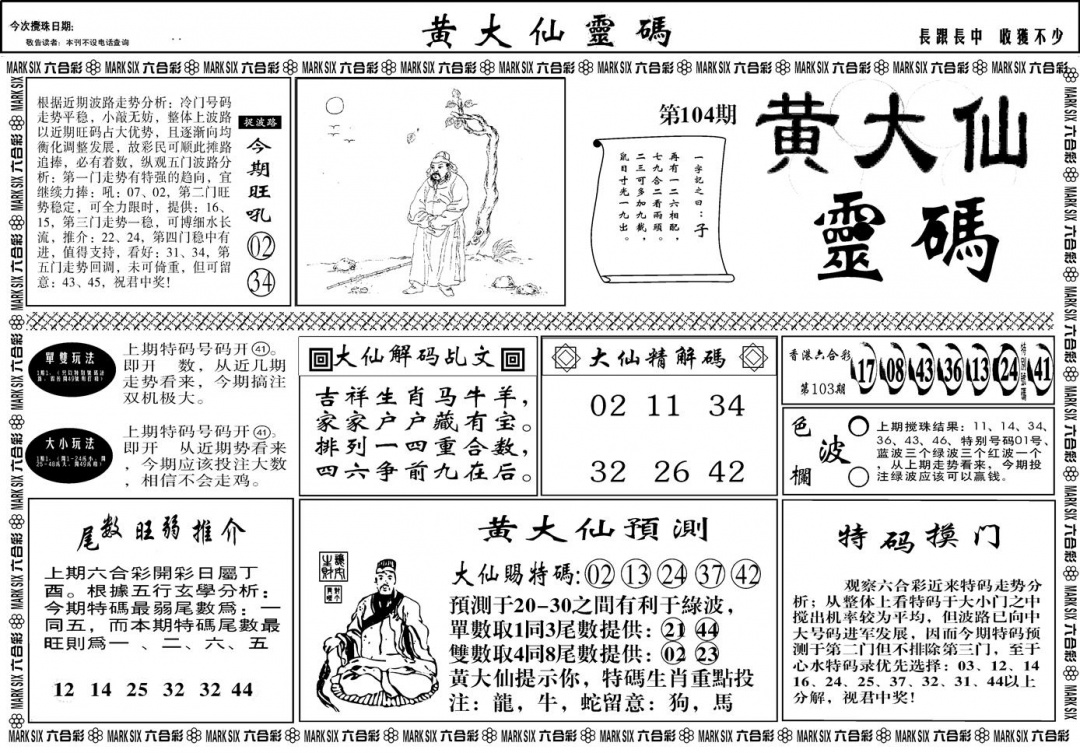 今次攪珠日期:
敬告读者: 本刊不设电话查询
黄大仙靈碼
長跟長中 收獲不少
MARK SIX 六合彩 MARK SIX 六合彩 MARK SIX 六合彩 MARK SIX 六合彩 MARK SIX 六合彩 MARK SIX 六合彩 MARK SIX 六合彩 MARK SIX 六合彩 MARK SIX 六合彩 MARK SIX 六合彩 MARK SIX 六合彩
根据近期波路走势分析; 冷门号码
走势平稳, 小敲无妨, 整体上波路
以近期旺码占大优势, 且逐渐向均
衡化调整发展, 故彩民可顺此摊路
追捧, 必有着数, 纵观五门波路分
析: 第一门走势有特强的趋向, 宜
继续力捧: 吼: 07、02, 第二门旺
势稳定, 可全力限时, 提供: 16、
15, 第三门走势一稳, 可博细水长
流, 推介: 22、24, 第四门稳中有
进, 值得支持, 看好: 31、34, 第
五门走势回调, 未可倚重, 但可留
意: 43、45, 祝君中奖!
捉波路
今期旺吼
02
34
第104期
一字記之曰: 子
再有一二六相配,
七九合二看兩頭。
二三可多加九截,
鼠目寸光一九出。
黄大仙
靈碼
單雙玩法
上期特码号码开㊶。
即开 数, 从近几期
走势看来, 今期搞注
双机极大。
大小玩法
上期特码号码开㊶.
即开 从近期势看来
, 今期应该投注大数
, 相信不会走鸡。
大仙解码乩文
吉祥生肖马牛羊,
家家户户藏有宝。
排列一四重合数,
四六争前九在后。
大仙精解碼
02 11 34
32 26 42
香港六合彩
第103期
17 08 43 36 13 24 特别號碼 41
色波欄
上期搅珠结果: 11、14、34、
36、43、46、特别号码01号、
蓝波三个绿波三个红波一个
, 从上期走势看来, 今期投
注绿波应该可以赢钱。
尾数旺弱推介
上期六合彩開彩日屬丁
酉。根據五行玄學分析:
今期特碼最弱尾數爲: 一
同五, 而本期特碼尾數最
旺則爲一 、二、六、五
12 14 25 32 32 44
黄大仙預測
大仙賜特碼: 02 13 24 37 42
預測于20-30之間有利于綠波,
單數取1同3尾數提供: 21 44
雙數取4同8尾數提供: 02 23
黄大仙提示你, 特碼生肖重點投
注: 龍, 牛, 蛇留意: 狗, 馬
特码摸门
观察六合彩近来特码走势分
析; 从整体上看特码于大小门之中
搅出机率较为平均, 但波路已向中
大号码进军发展, 因而今期特码预
测于第二门但不排除第三门, 至于
心水特码录优先选择: 03、12、14
16、24、25、37、32、31、44以上
分解, 视君中奖!
MARK SIX 六合彩 MARK SIX 六合彩 MARK SIX 六合彩 MARK SIX 六合彩 MARK SIX 六合彩 MARK SIX 六合彩 MARK SIX 六合彩 MARK SIX 六合彩 MARK SIX 六合彩 MARK SIX 六合彩 MARK SIX 六合彩